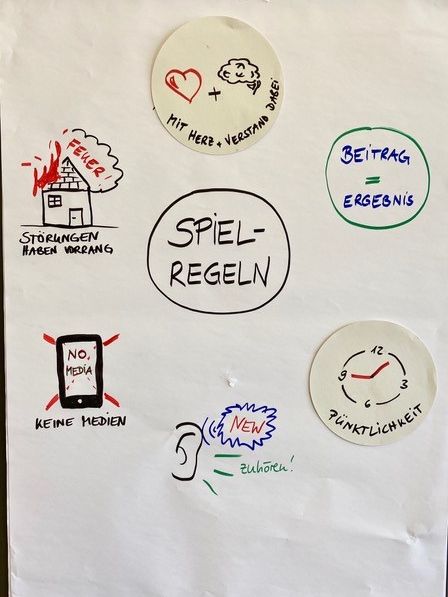 MIT HERZ + VERSTAND DABEI
+
FEUER!
STÖRUNGEN
HABEN VORRANG
BEITRAG
=
ERGEBNIS
SPIEL-
REGELN
NO
MEDIA
KEINE MEDIEN
12
9
3
6
PÜNKTLICHKEIT
NEW
zuhören!